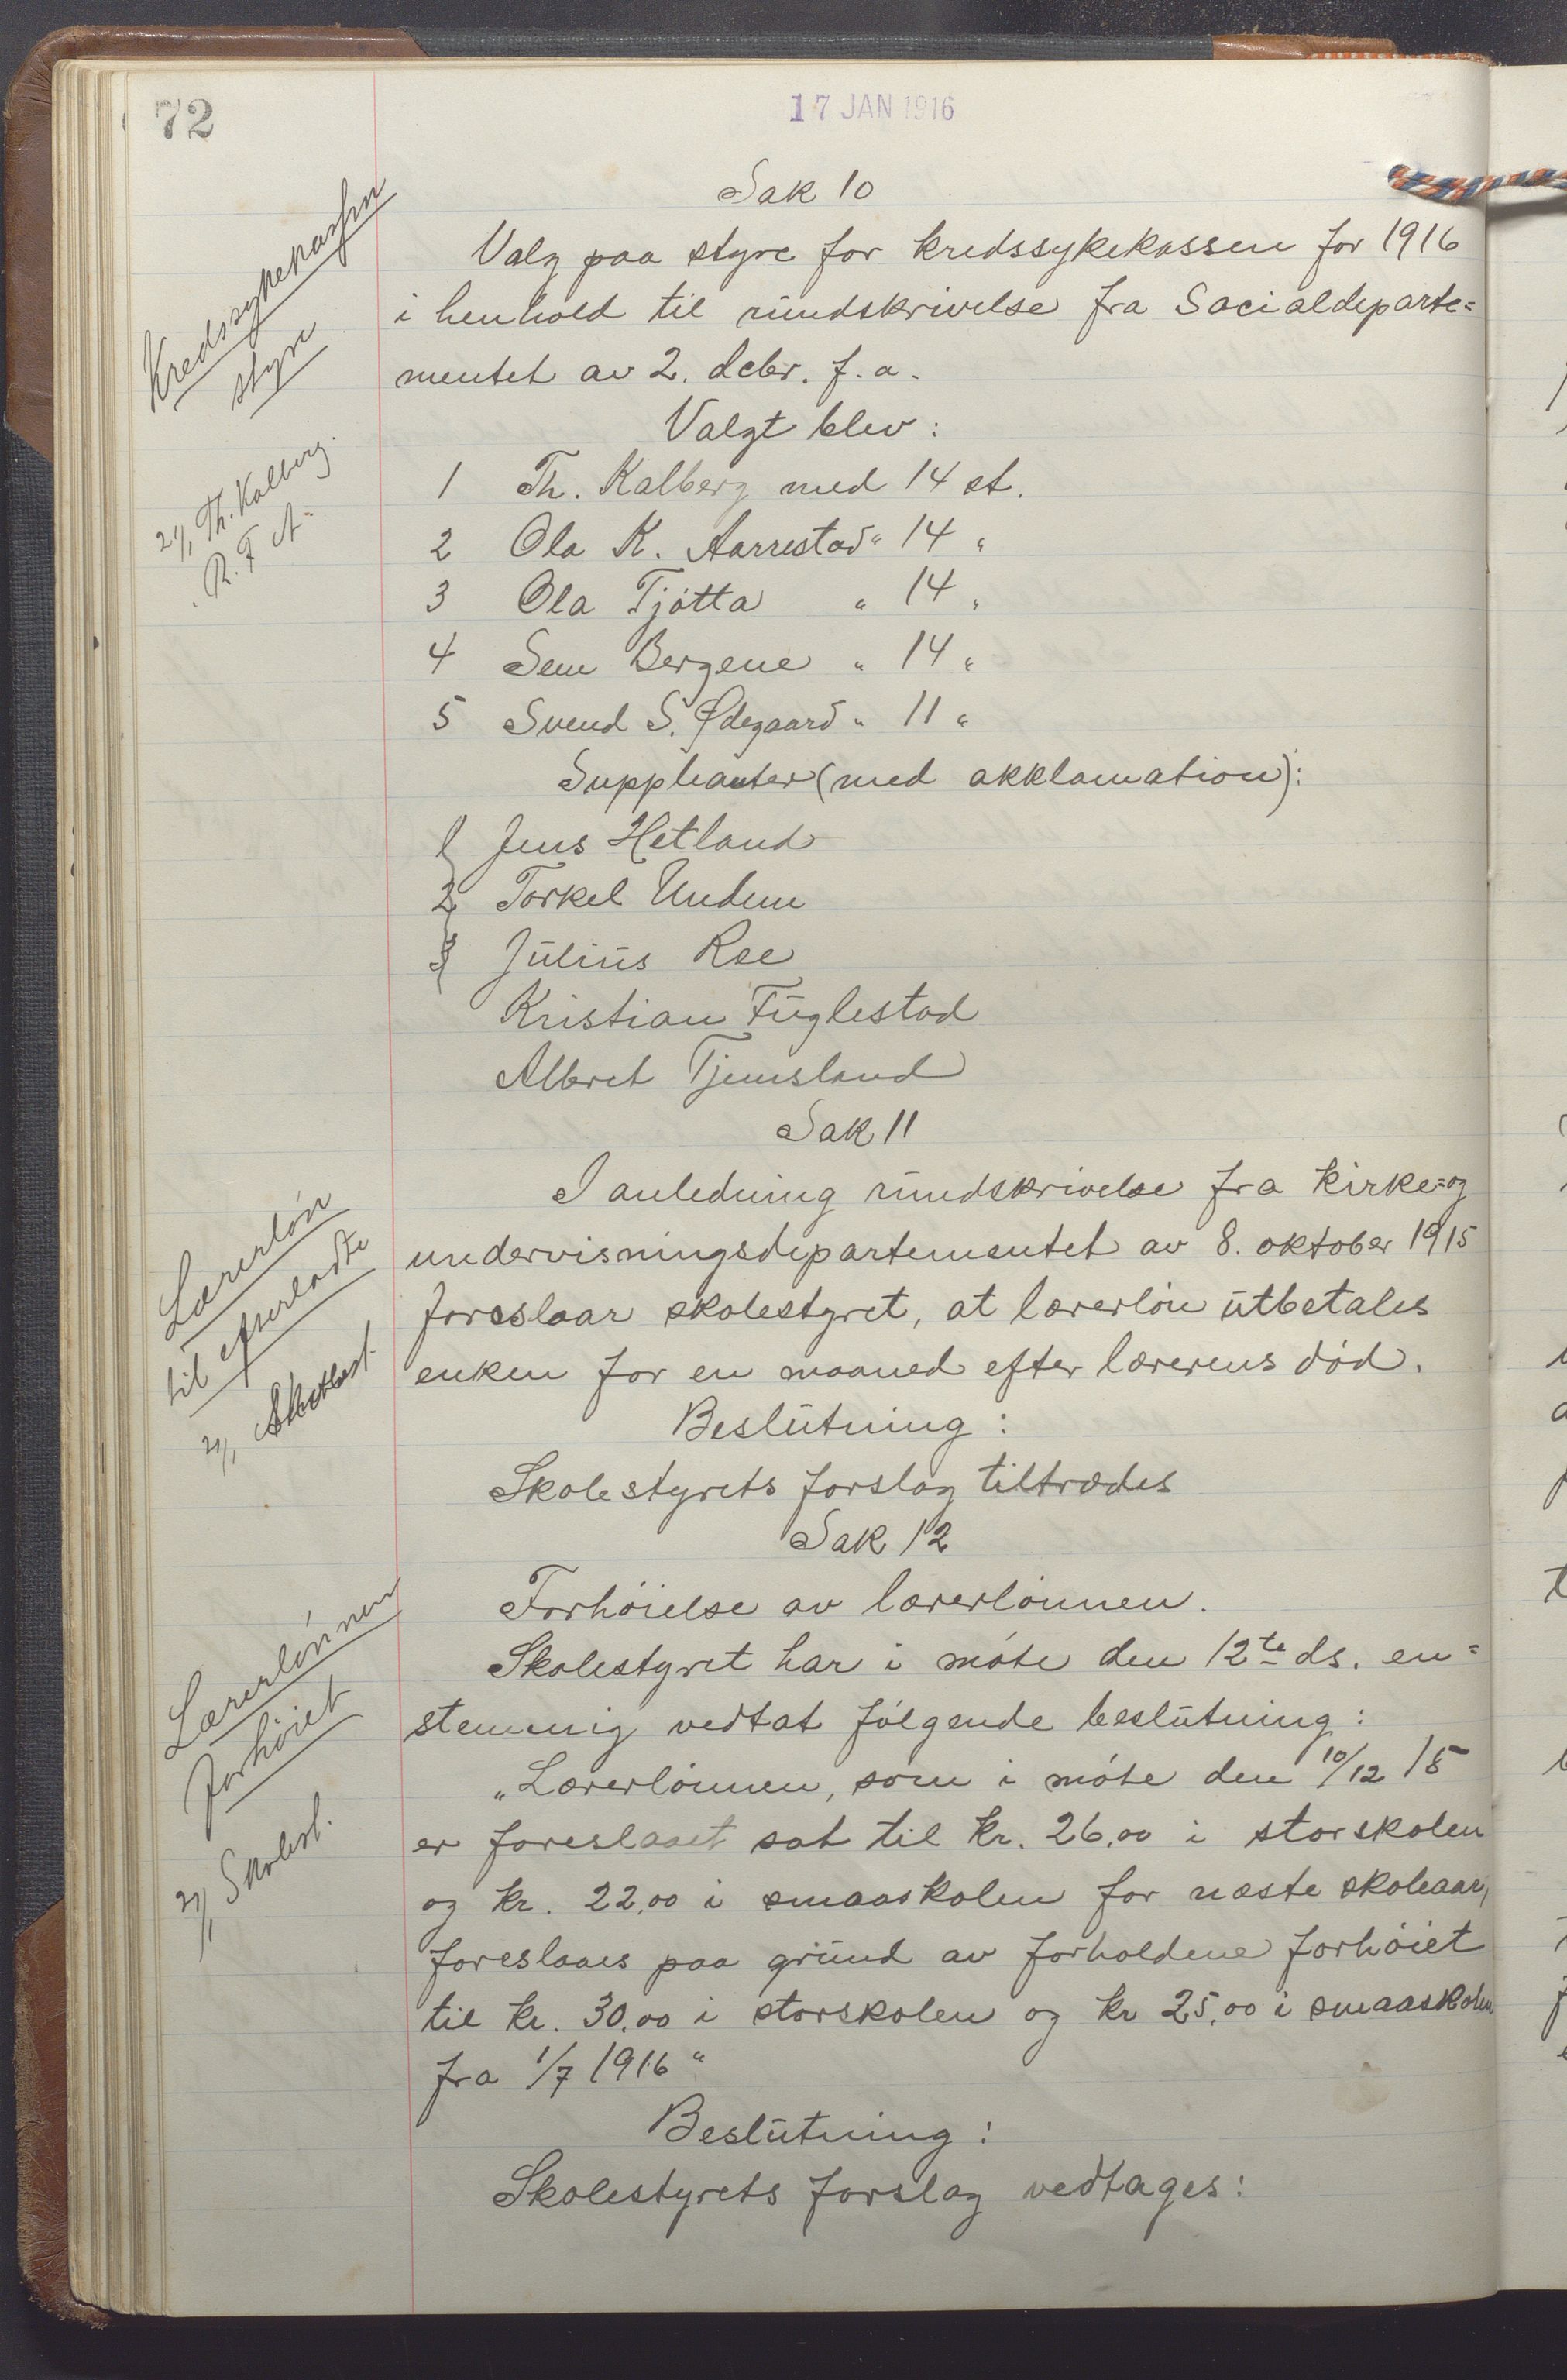 72
17 JAN 1916
Sak 10
Kredssykekassen
styre
Valg paa styre for kredssykekassen for 1916
i henhold til rundskrivelse fra Socialdeparte=
mentet av 2. debr. f.a.
Valgt blev:
21/1 Th. Kalberg.
R. F. A.
1 Th. Kalberg med 14 st.
2 Ola K. Aarrestad " 14 "
3 Ola Tjötta " 14 "
4 Sem Bergene " 14 "
5 Svend S. Ødegaard " 11 "
Suppleanter (med akklamation):
1 Jens Hetland
2 Torkel Undem
3 Julius Ree
Kristian Fuglestad
Albret Tjemsland
Sak 11
Lærerløn
til efterladte
21/1 Skolest.
I anledning rundskrivelse fra kirke= og
undervisningsdepartementet av 8. oktober 1915
foreslaar skolestyret, at lærerløn utbetales
enken for en maaned efter lærerens død.
Beslutning:
Skolestyrets forslag tiltrædes
Sak 12
Lærerlønnen
forhöiet
21/1 Skolest.
Forhöielse av lærerlönnen.
Skolestyret har i möte den 12te ds. en=
stemmig vedtat fölgende beslutning:
"Lærerlönnen, som i möte den 10/12 15
er foreslaaet sat til kr. 26,00 i storskolen
og kr. 22,00 i smaaskolen for næste skoleaar,
foreslaaes paa grund av forholdene forhöiet
til kr. 30,00 i storskolen og kr 25,00 i smaaskolen
fra 1/7 1916"
Beslutning:
Skolestyrets forslag vedtages: